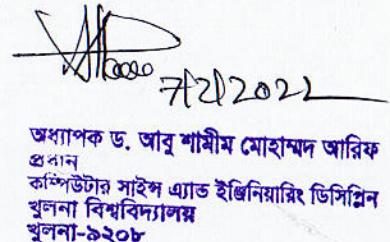 7/2/2022
অধ্যাপক ড. আবু শামীম মোহাম্মদ আরিফ
প্রধান
কম্পিউটার সাইন্স এ্যান্ড ইঞ্জিনিয়ারিং ডিসিপ্লিন
খুলনা বিশ্ববিদ্যালয়
খুলনা-৯২০৮